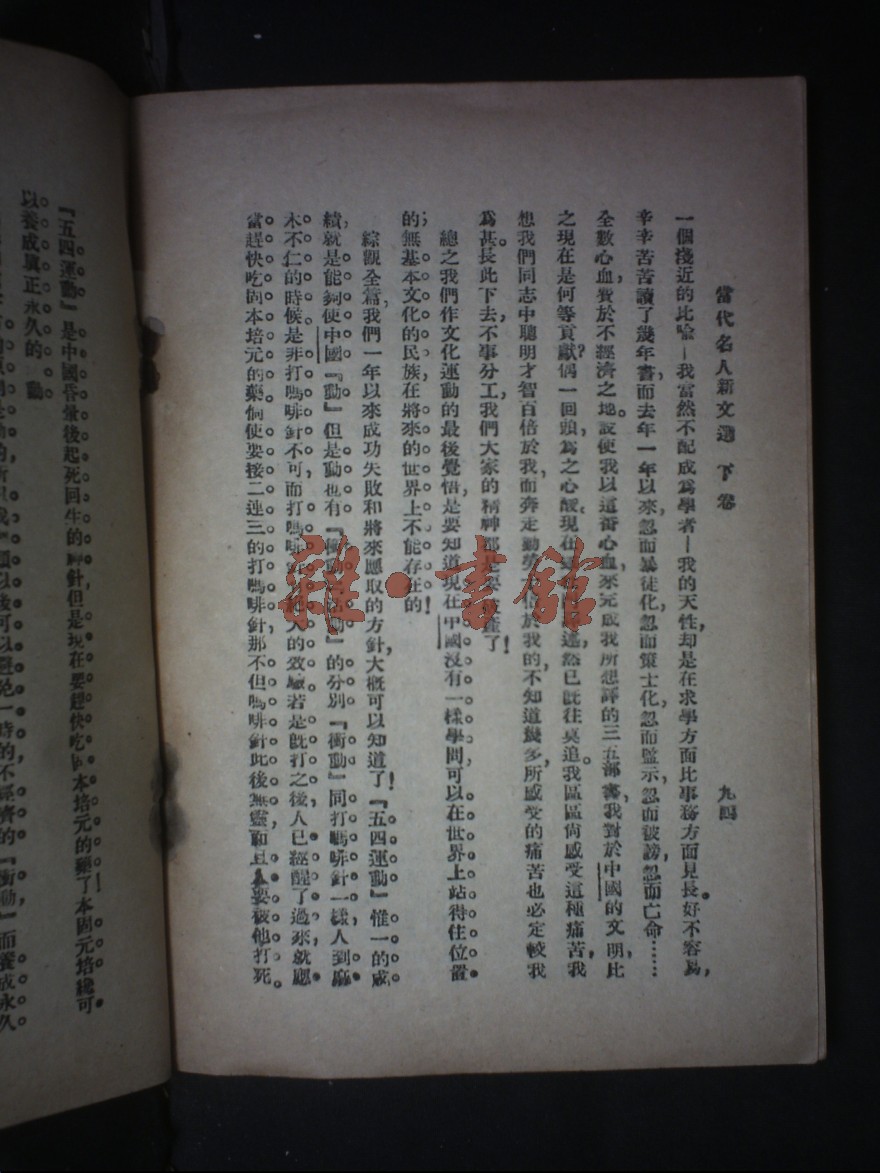 當代名人新文選 下卷
九四
一個淺近的比喻—我當然不配成爲學者—我的天性,却是在求學方面比事務方面見長。好不容易,
辛辛苦苦讀了幾年書,而去年一年以來,忽而暴徒化,忽而策士化,忽而監示,忽而被謗,忽而亡命……
全數心血,費於不經濟之地。設使我以這番心血,來完成我所想譯的三五部書,我對於中國的文明,比
之現在是何等貢獻?偶一回頭,爲之心酸。現在 已旣往莫追。我區區尙感受這種痛苦,我
想我們同志中聰明才智百倍於我,而奔走勤勞 於我的,不知道幾多,所感受的痛苦也必定較我
爲甚。長此下去,不事分工,我們大家的精神都是要破產了!
總之我們作文化運動的最後覺悟,是要知道現在中國沒有一樣學問,可以在世界上站得住位置
的;無基本文化的民族,在將來的世界上不能存在的!
綜觀全篇,我們一年以來成功失敗和將來應取的方針,大概可以知道了!『五四運動』惟一的成
績就是能夠使中國『動』但是動也有『衝動』『活動』的分別『衝動』同打嗎啡針一樣,人到麻
木不仁的時候是非打嗎啡針不可而打嗎啡 的效驗若是旣打之後人已經醒了過來就應
當趕快吃固本培元的藥倘使要接二連三的打嗎啡針那不但嗎啡針此後無靈而且人要被他打死。
『五四運動』是中國昏暈後起死回生的神針,但是現在要趕快吃固本培元的藥了!本固元培,纔可
以養成眞正永久的 動
以後可以避免一時的不經濟的『衝動』而養成永久
雜·書館